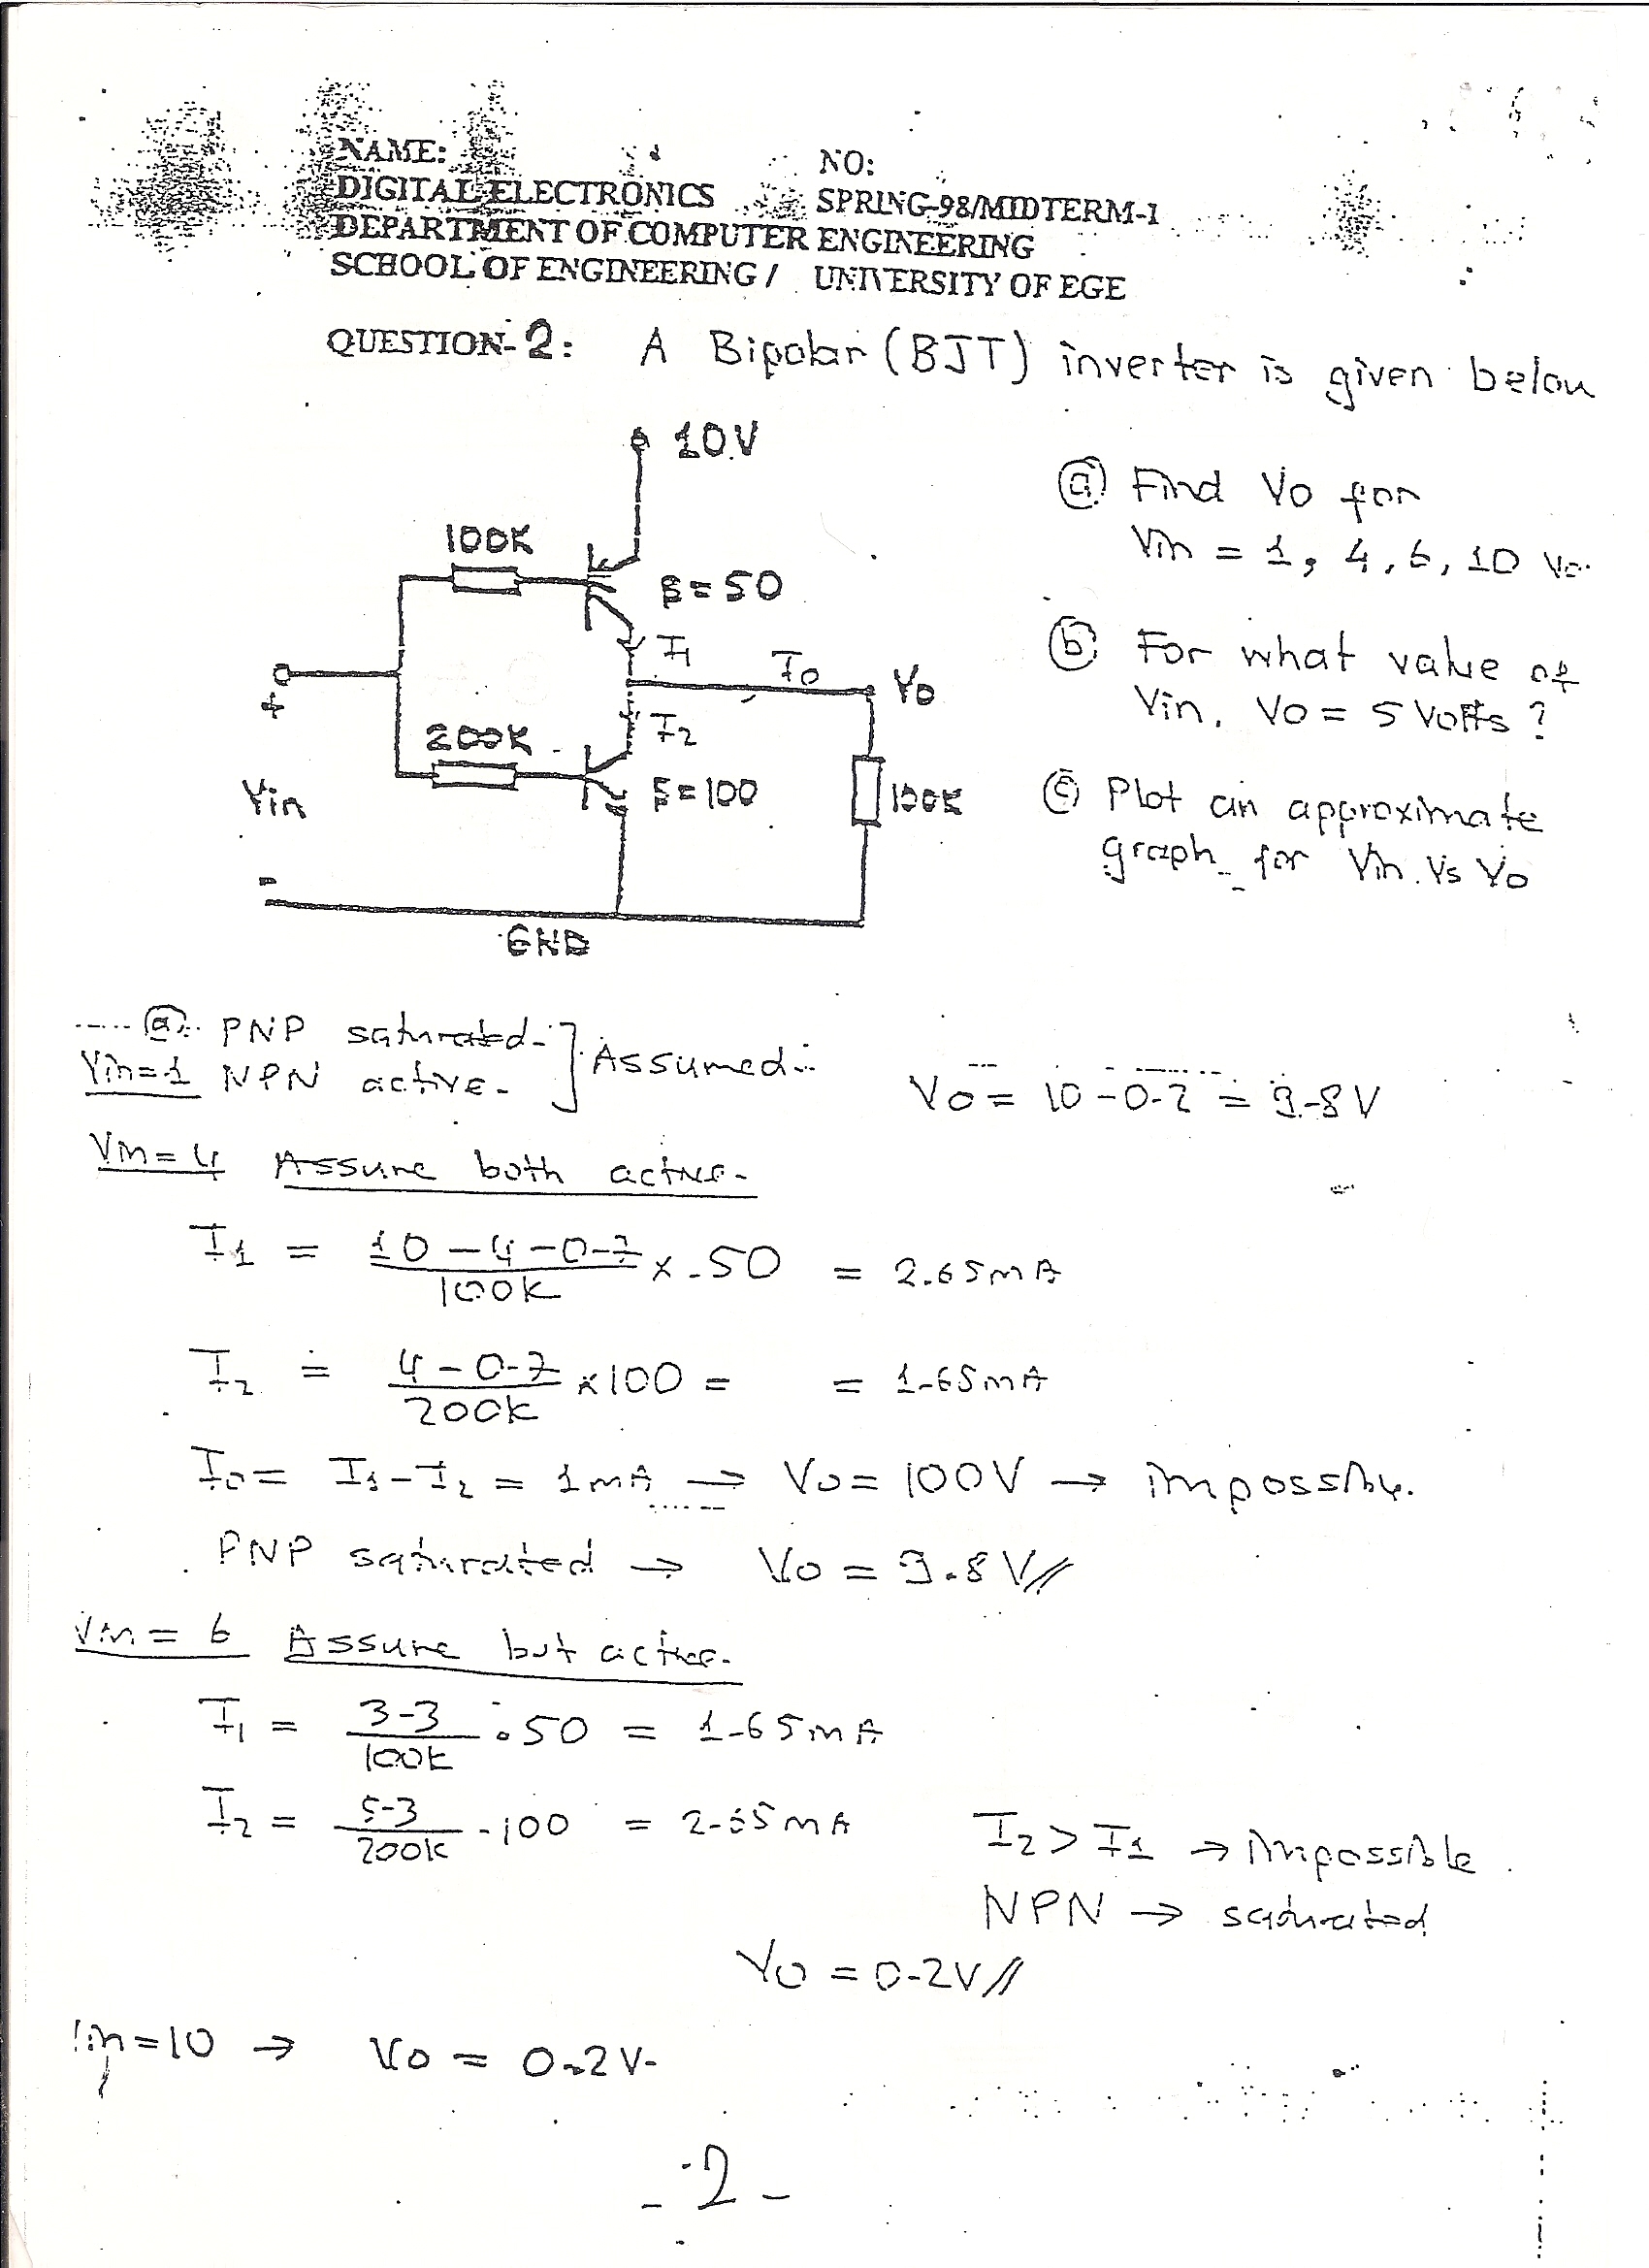 NAME: NO:
DIGITAL ELECTRONICS SPRING-98/MIDTERM-1
DEPARTMENT OF COMPUTER ENGINEERING
SCHOOL OF ENGINEERING / UNIVERSITY OF EGE
QUESTION-2: A Bipolar (BJT) inverter is given below
10V
100K
β=50
I1
Io
Vo
+
I2
200K
β=100
100K
Vin
-
GND
(a) Find Vo for
Vin = 1, 4, 6, 10 Vo.
(b) For what value of
Vin, Vo = 5 Volts?
(c) Plot an approximate
graph for Vin Vs Vo
(a) PNP saturated. ] Assumed
Vin=1 NPN active.
Vo = 10-0.2 = 9.8V
Vin=4 Assume both active.
I1 = 10-4-0.7 / 100K x 50 = 2.65mA
I2 = 4-0.7 / 200K x100 = = 1.65mA
Io = I1-I2 = 1mA → Vo = 100V → impossible.
PNP saturated → Vo = 9.8V//
Vin = 6 Assume but active.
I1 = 3.3 / 100K . 50 = 1.65mA
I2 = 5.3 / 200K . 100 = 2.65mA
I2 > I1 → impossible.
NPN → saturated
Vo = 0.2V//
Vin=10 → Vo = 0.2V.
- 2 -